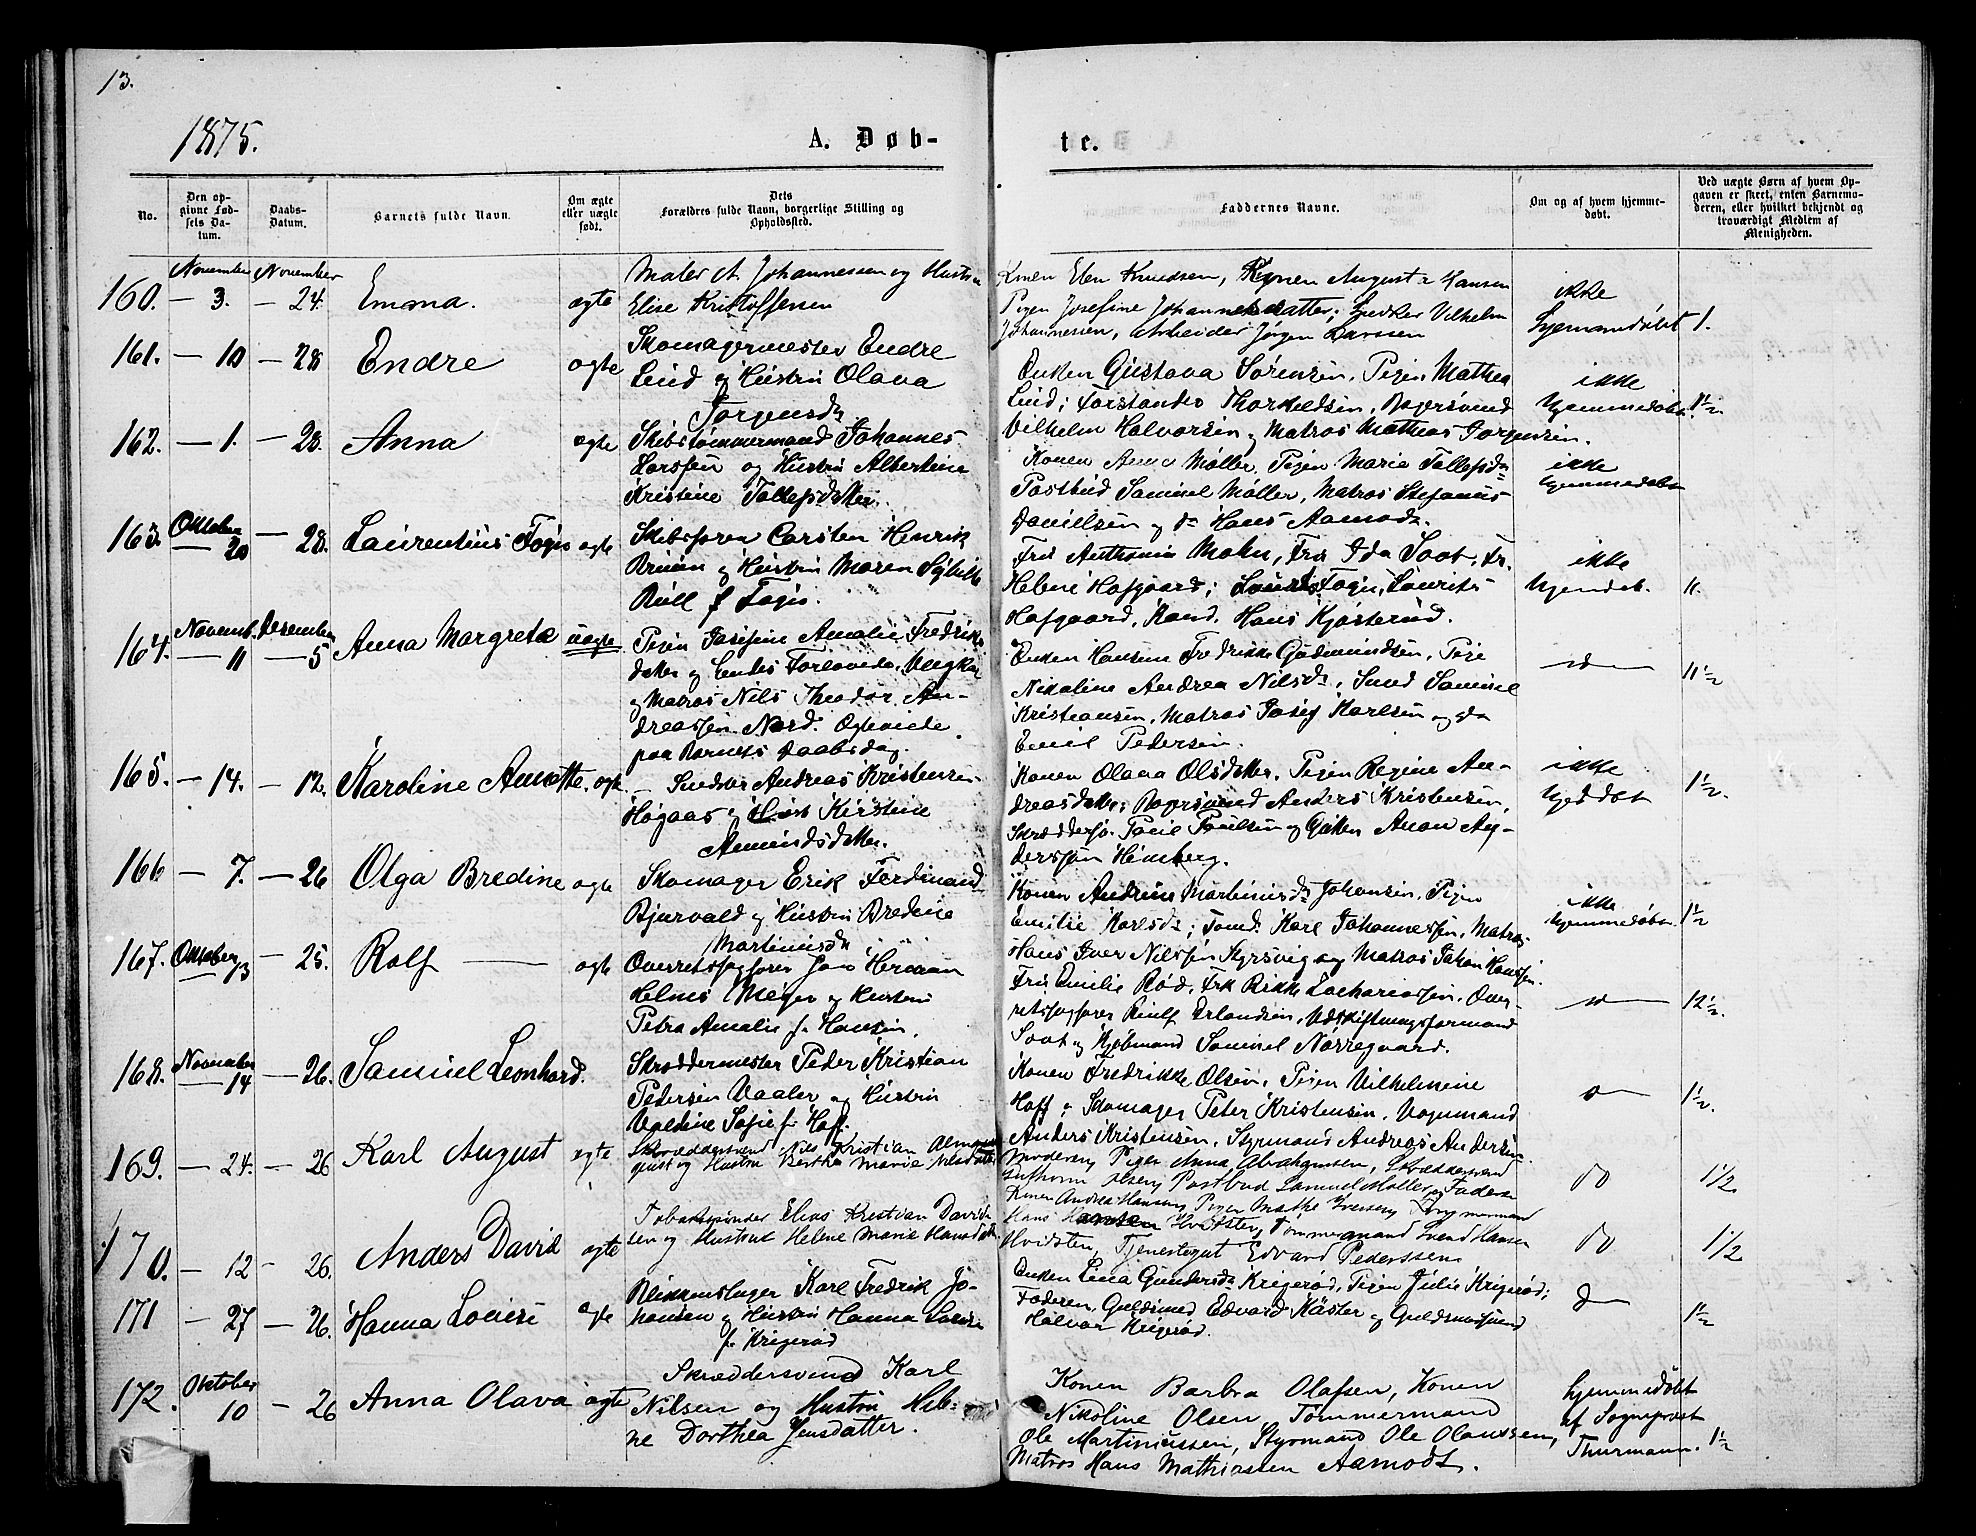 13.
1875.
A. Døb-
te.
No.
Den op-
givne Fød-
sels Da-
tum.
Daabs-
Datum.
Barnets fulde Navn.
Om ægte
eller uægte
født.
Dets
Forældres fulde Navn, borgerlige Stilling og
Opholdssted.
Faddernes Navne.
Om og af hvem hjemme-
døbt.
Ved uægte Børn af hvem Op-
gaven er skeet, enten Barnemo-
deren, eller hvilket bekjendt og
troværdigt Medlem af
Menigheden.
November November
160. — 3. — 24. Emma. ægte
Maler A. Johannessen og Hustru
Elise Kristoffersen
Konen Elen Knudsen, Konen Augusta Hansen
Pigen Josefine Johannesdatter; Snedker Vilhelm
Johannessen, Arbeider Jørgen Larssen
ikke
hjemmedøbt 1.
161. — 10 — 28 Endre ægte
Skomagermester Endre
Lind og Hustru Olava
Jørgensdr
Enken Gustava Sørensen, Pigen Mathea
Lind; Forstander Thorkildsen, Bøgersvend
Vilhelm Halvorsen og Matros Mathias Jørgensen.
ikke
hjemmedøbt. 1½
162. — 1. — 28. Anna ægte
Skibstømmermand Johannes
Larssen og Hustru Albertine
Kristine Tollefsdatter.
Konen Anna Møller, Pigen Maria Tollefsdr
Postbud Samuel Møller, Matros Stefanus
Danielsen og do Hans Aamodt.
ikke
hjemmedøbt
163. Oktober
— 20 — 28. Laurentius Føgn ægte
Skibsfører Carsten Henrik
Bruun og Hustru Maren Sybille
Bull f. Føgn.
Fru Anthonia Mohn, Fru Ida Soot, Fr.
Helene Hofgaard; Føgn, Laurits
Hofgaard, Kand. Hans Kjøsterud.
ikke
hjemdøb. 11.
164. Novemb. Desember
— 11 — 5 Anna Margrete uægte
Pigen Josefine Amalie Fredriks-
datter og Endes Forlovede, Ungkar
og Matros Nils Theodor An-
dreassen Nord. Ægteviede
paa Barnets Daabsdag.
Enken Hansine Fredrikke Gudmundsen, Pige
Nikoline Andrea Nilsdr, Smed Samuel
Kristiansen, Matros Josef Karlsen og do
Emil Pedersen.
do — 11½
165. — 14. — 12. Karoline Annette. ægte.
Snedker Andreas Kristensen
Høgaas og Hust Kirstine
Aamundsdatter.
Konen Olava Olsdatter, Pigen Regine An-
dreasdatter; Bøgersvend Anders Kristensen,
Skræddersv. Paul Paulsen og Anon An-
derssen Himberg.
ikke
hjeddøbt 1½.
166 — 7. — 26 Olga Bredine ægte
Skomager Erik Ferdinand
Bjurvald og Hustru Bredine
Martinusdr
Konen Andrine Martinusdr Johansen, Pigen
Emilie Karlsdr; Tømd. Karl Johannessen, Matros
Hans Iver Nilssen Kyrsvig og Matros Johan Hanssen.
ikke
hjemmedøbt. 1½
167. Oktober
13 — 25. Rolf — ægte
Overretssagfører Jens Herman
Helnes Meyer og Hustru
Petra Amalie f. Hansen.
Fru Emilie Rød, Frk Rikke Zachariassen, Over-
retssagfører Rulf Erlandsen, Udskiftningsformand
Soot og Kjøbmand Samuel Nørregaard.
do — 12½.
168. November
— 14 — 26. Samuel Leonhard.
Skræddermester Peder Kristian
Petersen Vaaler og Hustru
Valdine Sofie f. Hoff.
Konen Fredrikke Olsen, Pigen Vilhelmine
Hoff; Skomager Peter Kristensen, Vognmand
Anders Kristensen, Styrmand Andreas Andersen.
do — 1½.
169. — 24. — 26 Karl August ægte
Skræddersvend Nils Kristian Alm-
quist og Hustru Berthe Marie Nilsdatter
Moderen, Pigen Anna Abrahamsen, Skræddersvend
Olsen, Postbud Samuel Møller og Faderen
do 1½.
170. — 12 — 26. Anders David ægte
Tobaksspinder Elias Kristian David-
sen og Hustru Helene Marie Hansdatter
Konen Andrea Hansen, Pigen Mathe Iversen, Styrmand
Hans Hansen Hvidsten, Tømmermand Svend Hansen
Hvidsten, Tjenestegut Edvard Pederssen
do 1½
171 — 27 — 26. Hanna Louise ægte
Blikkenslager Karl Fredrik Jo-
hansen og Hustru Hanna Lovise
f. Krigerød
Enken Lina Gundersdr Krigerød, Pigen Julie Krigerød;
Faderen, Guldsmed Edvard Kaster og Guldsmedsvend
Halvor Krigerød.
d — 1½
172. Oktober
10 — 26 Anna Olava ægte
Skræddersvend Karl
Nilsen og Hustru Hele-
ne Dorthea Jensdatter.
Konen Barbra Olafsen, Konen
Nikoline Olsen, Tømmermand
Ole Martiniussen, Styrmand Ole Olaussen,
Matros Hans Mathiassen Aamodt.
hjemmedøbt
af Sogneprest
Thurmann. 1½